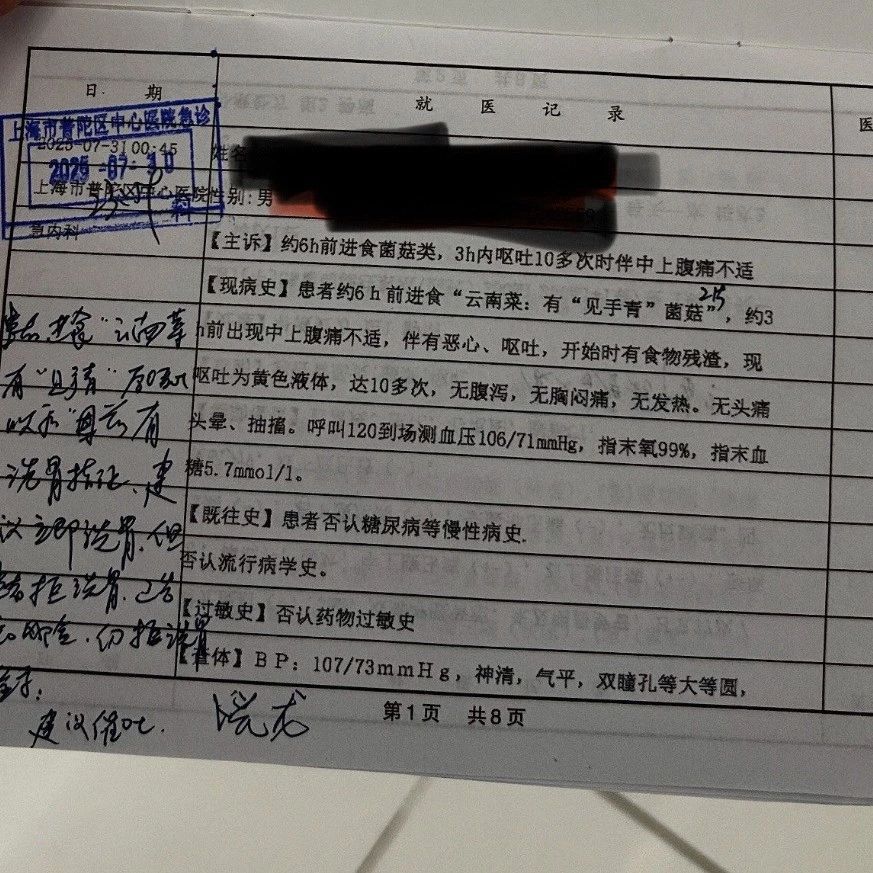 日 期
就 医 记 录
医
上海市普陀区中心医院急诊
2025-07-31 00:45
2025-07-30
姓名
上海市普陀区中心医院
科
性别: 男
急内科
【主诉】约6h前进食菌菇类，3h内呕吐10多次时伴中上腹痛不适
【现病史】患者约6h前进食“云南菜：有“见手青”菌菇”，约3
h前出现中上腹痛不适，伴有恶心、呕吐，开始时有食物残渣，现
呕吐为黄色液体，达10多次，无腹泻，无胸闷痛，无发热。无头痛
头晕、抽搐。呼叫120到场测血压106/71mmHg，指末氧99%，指末血
糖5.7mmol/l。
【既往史】患者否认糖尿病等慢性病史.
否认流行病学史。
【过敏史】否认药物过敏史
【查体】BP：107/73mmHg，神清，气平，双瞳孔等大等圆，
第1页 共8页
进食“云南菜
有“见手青”
有
洗胃指征、建
议立即洗胃，但
拒洗胃，
仍拒洗胃
签字：
建议催吐.